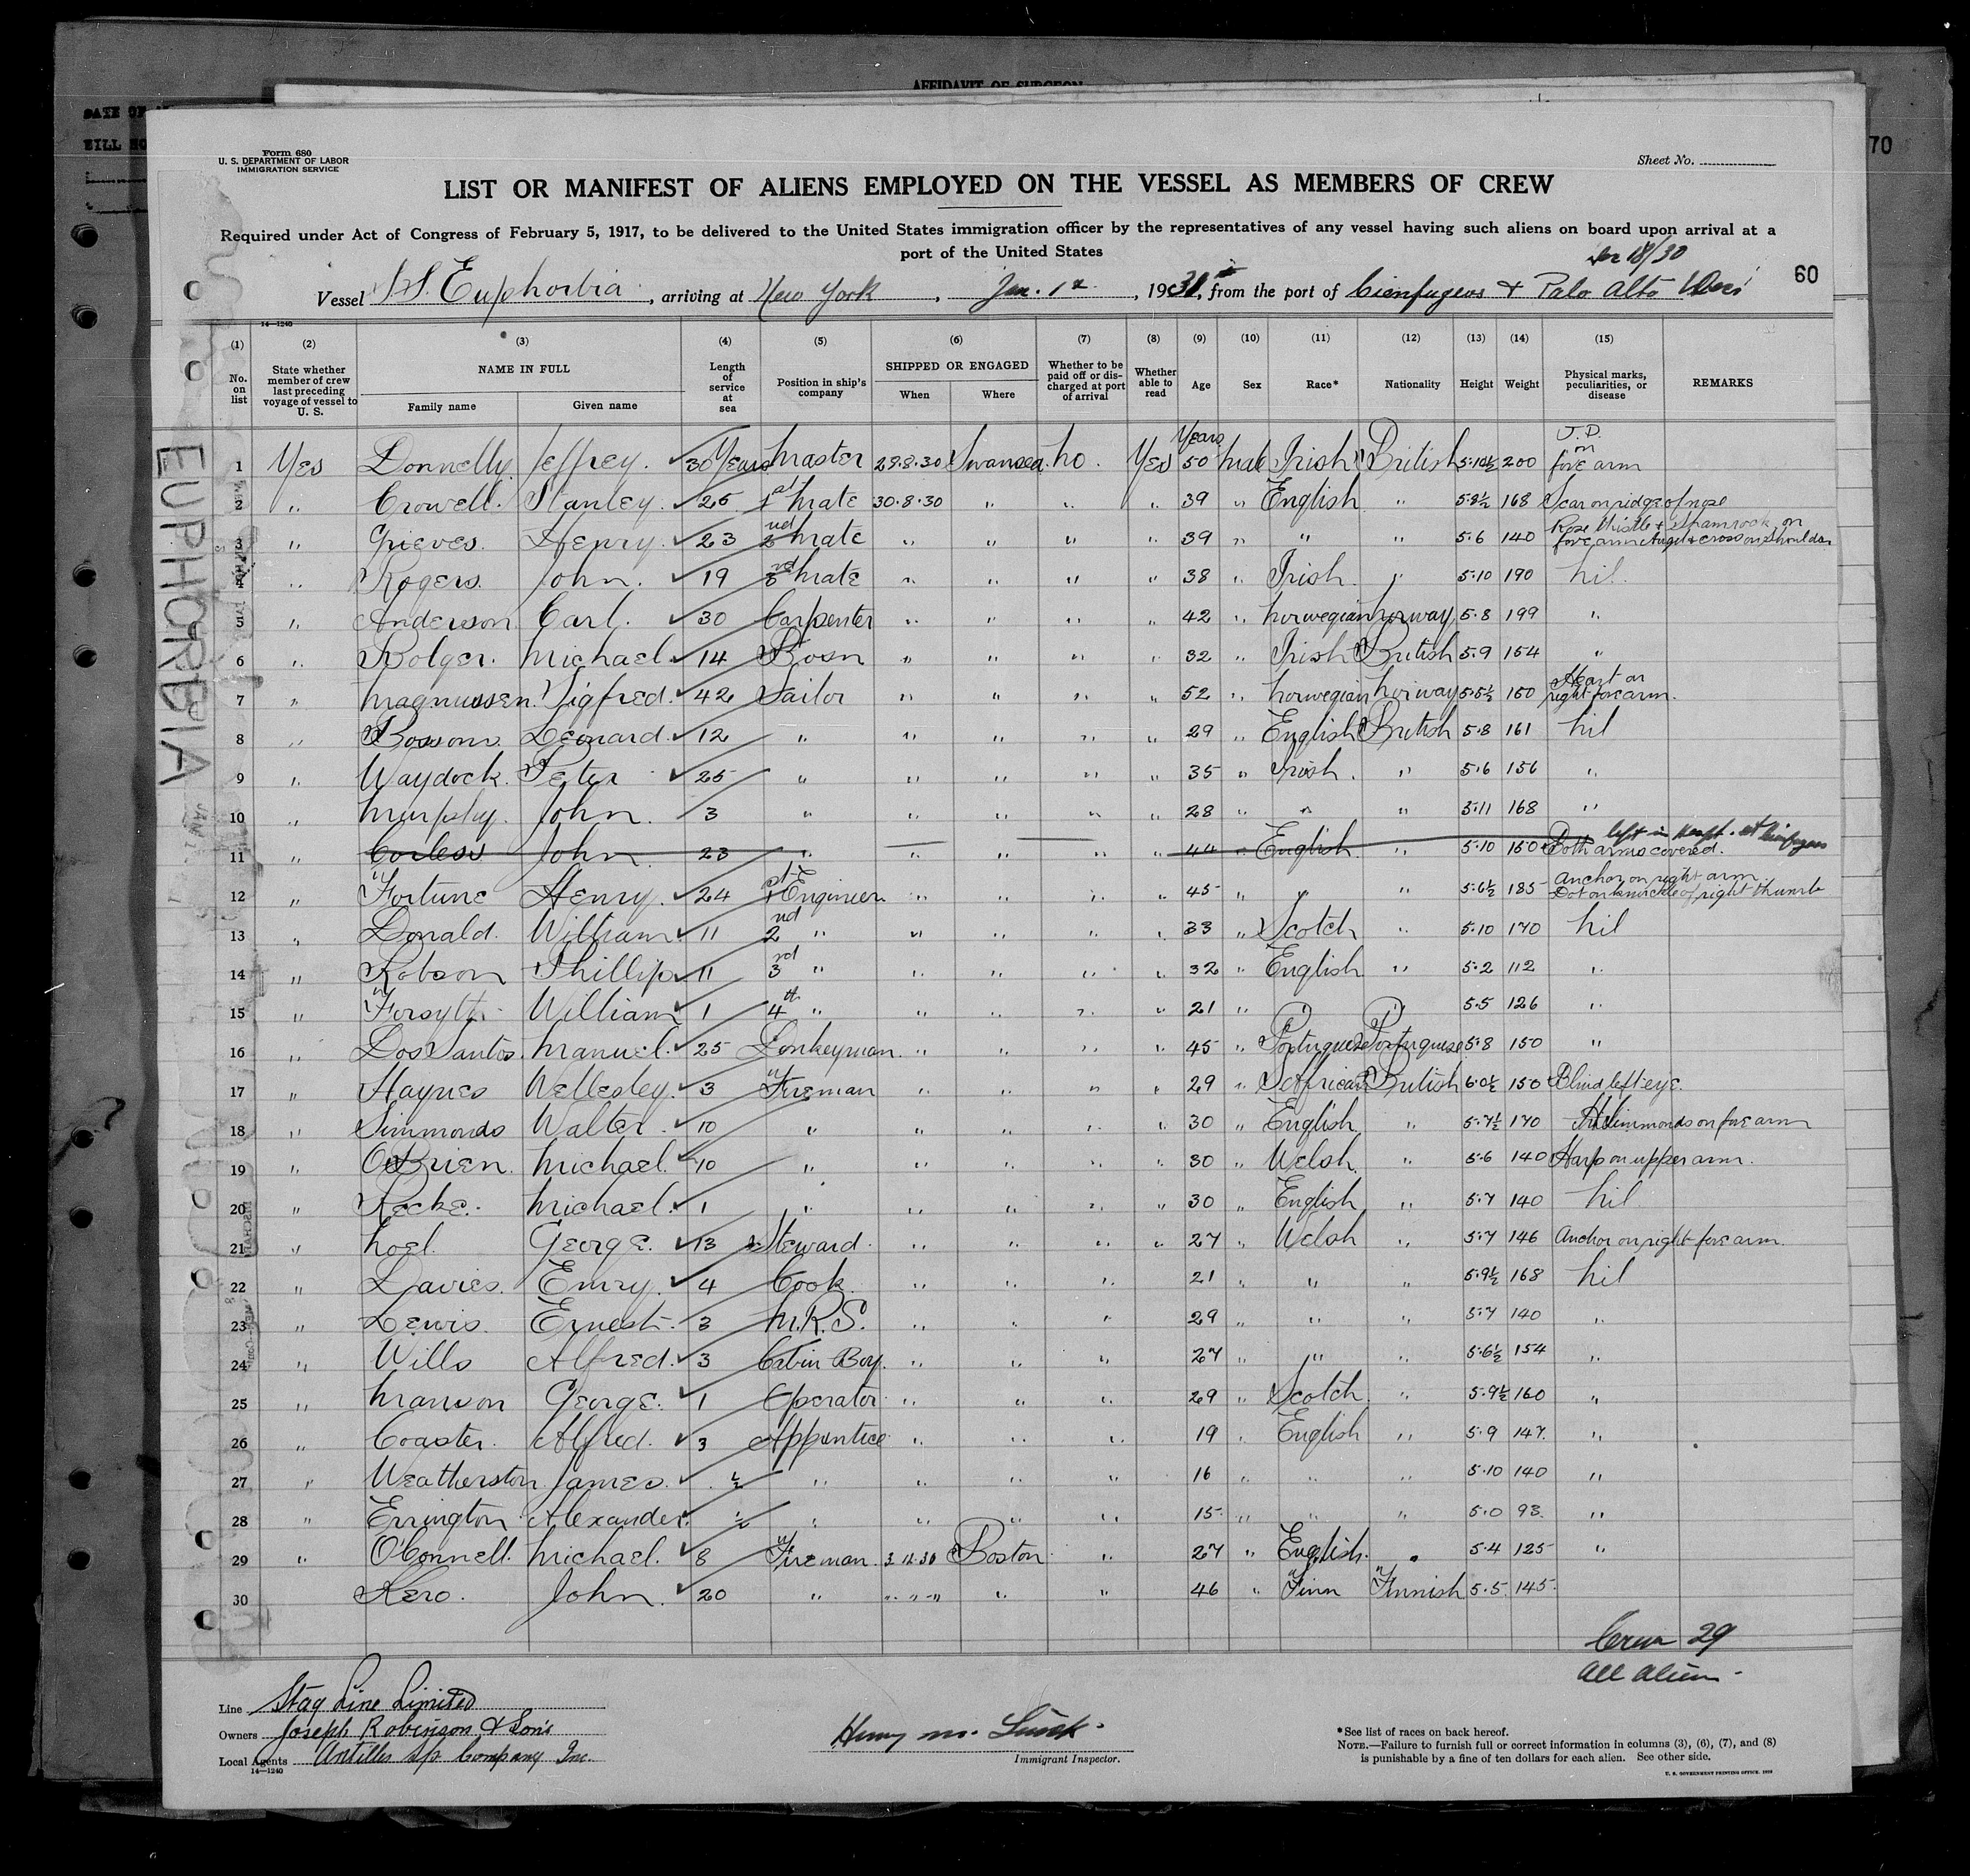 AFFIDAVIT OF SURGEON
70
Form 680
U. S. DEPARTMENT OF LABOR
IMMIGRATION SERVICE
Sheet No.
LIST OR MANIFEST OF ALIENS EMPLOYED ON THE VESSEL AS MEMBERS OF CREW
Required under Act of Congress of February 5, 1917, to be delivered to the United States immigration officer by the representatives of any vessel having such aliens on board upon arrival at a
port of the United States
18/30
60
Vessel S.S. Euphorbia, arriving at New York, Jan. 1st, 1931, from the port of Cienfuegos & Palo Alto
14—1240
(1) (2) (3) (4) (5) (6) (7) (8) (9) (10) (11) (12) (13) (14) (15)
No. on list State whether member of crew last preceding voyage of vessel to U. S. NAME IN FULL Family name Given name Length of service at sea Position in ship's company SHIPPED OR ENGAGED When Where Whether to be paid off or discharged at port of arrival Whether able to read Age Sex Race* Nationality Height Weight Physical marks, peculiarities, or disease REMARKS
EUPHORBIA
1 Yes Donnelly Jeffrey. 30 Years Master 29.8.30 Swansea. No. Yes Years 50 Male Irish British 5.10½ 200 J.D. on fore arm
2 " Crowell. Stanley. 25 1st Mate 30.8.30 " " " 39 " English " 5.8½ 168 Scar on ridge of nose
3 " Grieves. Henry. 23 2nd Mate " " " " 39 " " " 5.6 140 Rose thistle & Shamrock on fore arm Angel & cross on shoulder
4 " Rogers. John. 19 3rd Mate " " " " 38 " Irish. " 5.10 190 Nil.
5 " Anderson Carl. 30 Carpenter " " " " 42 " Norwegian Norway 5.8 199 "
6 " Bolger. Michael. 14 Bosn " " " " 32 " Irish British 5.9 154 "
7 " Magnussen. Sigfred. 42 Sailor " " " " 52 " Norwegian Norway 5.5½ 150 Heart on right fore arm.
8 " Bossom. Leonard. 12 " " " " " 29 " English British 5.8 161 Nil
9 " Waydock. Peter 25 " " " " " 35 " Irish. " 5.6 156 "
10 " Murphy. John. 3 " " " " " 28 " " " 5.11 168 "
11 " Corless John 23 " " " " " 44 " English. " 5.10 150 Both arms covered. left in Hospt. at Cienfuegos
12 " Fortune Henry. 24 1st Engineer. " " " " 45 " " " 5.6½ 185 Anchor on right arm. Dot on knuckle of right thumb
13 " Donald. William. 11 2nd " " " " " 33 " Scotch " 5.10 170 Nil
14 " Robson Phillip. 11 3rd " " " " " 32 " English " 5.2 112 "
15 " Forsyth. William 1 4th " " " " " 21 " " " 5.5 126 "
16 " Dos Santos. Manuel. 25 Donkeyman. " " " " 45 " Portuguese Portuguese 5.8 150 "
17 " Haynes Wellesley. 3 Fireman " " " " 29 " S African British 6.0½ 150 Blind left eye.
18 " Simmonds Walter. 10 " " " " " 30 " English " 5.7½ 170 Simmonds on fore arm
19 " O'Brien. Michael. 10 " " " " " 30 " Welsh. " 5.6 140 Harp on upper arm.
20 " Keeke. Michael. 1 " " " " " 30 " English " 5.7 140 Nil.
21 " Noel. George. 13 Steward. " " " " 27 " Welsh " 5.7 146 Anchor on right fore arm.
22 " Davies. Emry. 4 Cook. " " " 21 " " " 5.9½ 168 Nil
23 " Lewis. Ernest. 3 M.R.S. " " " 29 " " " 5.7 140 "
24 " Wills Alfred. 3 Cabin Boy. " " " 27 " " " 5.6½ 154 "
25 " Manson George. 1 Operator " " " 29 " Scotch " 5.9½ 160 "
26 " Coaster. Alfred. 3 Apprentice " " " 19 " English " 5.9 147. "
27 " Weatherston James. ½ " " " " 16 " " " 5.10 140 "
28 " Errington Alexander. ½ " " " " 15 " " " 5.0 93. "
29 " O'Connell. Michael. 8 Fireman. 3.11.30 Boston " 27 " English. " 5.4 125 "
30 Kero. John. 20 " " " " 46 " Finn Finnish 5.5 145.
Crew 29
All Aliens.
Line Stag Line Limited
Owners Joseph Robinson & Sons
Local Agents Antilles s/p Company Inc.
14—1240
Henry M.
Immigrant Inspector.
*See list of races on back hereof.
NOTE.—Failure to furnish full or correct information in columns (3), (6), (7), and (8)
is punishable by a fine of ten dollars for each alien. See other side.
U. S. GOVERNMENT PRINTING OFFICE